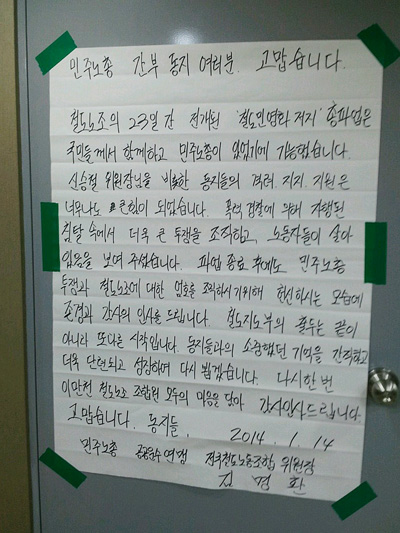 민주노총 간부 동지 여러분. 고맙습니다.
철도노조의 23일간 전개된 '철도민영화 저지' 총파업은
국민들께서 함께하고 민주노총이 있었기에 가능했습니다.
신승철 위원장님을 비롯한 동지들의 격려. 지지. 지원은
너무나도 큰힘이 되었습니다. 폭력 경찰에 의해 자행된
침탈 속에서 더욱 큰 투쟁을 조직하고, 노동자들이 살아
있음을 보여 주셨습니다. 파업 종료 후에도 민주노총
투쟁과 철도노조에 대한 엄호를 조직하시기위해 헌신하시는 모습에
존경과 감사의 인사를 드립니다. 철도지도부의 출두는 끝이
아니라 또다른 시작입니다. 동지들과의 소중했던 기억을 간직하고
더욱 단련되고 성장하여 다시 뵙겠습니다. 다시한번
이만천 철도노조 조합원 모두의 마음을 담아 감사인사드립니다.
고맙습니다. 동지들.
2014. 1. 14
민주노총 공공운수연맹 전국철도노동조합 위원장
김명환